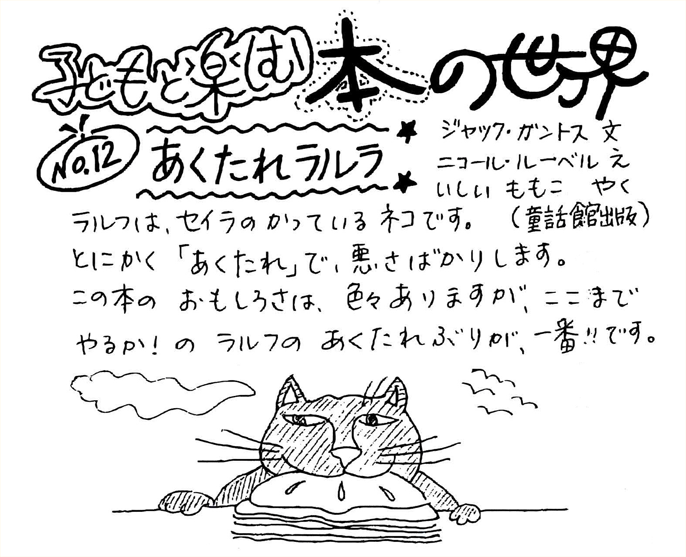 子どもと楽しむ本の世界
NO.12
あくたれラルラ
ジャック・ガントス 文
ニコール・ルーベル え
いしい ももこ やく
(童話館出版)
ラルフは、セイラのかっている ネコです。
とにかく「あくたれ」で、悪さばかりします。
この本の おもしろさは、色々ありますが、ここまで
やるか! の ラルフの あくたれぶりが、一番!!です。